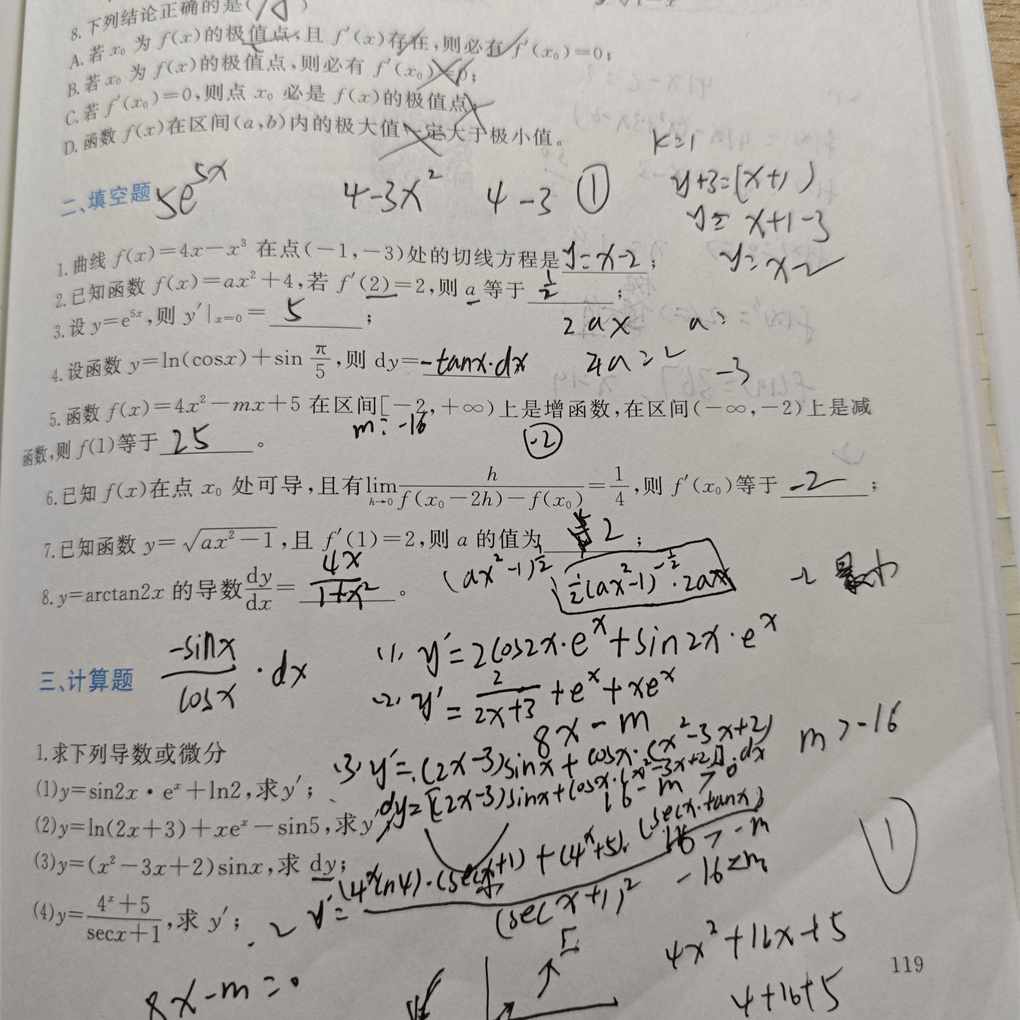 8.下列结论正确的是( A )
A.若 x₀ 为 f(x)的极值点,且 f′(x)存在,则必有 f′(x₀)=0;
B.若 x₀ 为 f(x)的极值点,则必有 f′(x₀)=0;
C.若 f′(x₀)=0,则点 x₀ 必是 f(x)的极值点;
D.函数 f(x)在区间(a,b)内的极大值一定大于极小值。
k=1
二、填空题 5e^{5x} 4-3x² 4-3 ① y+3=(x+1)
y= x+1-3
1.曲线 f(x)=4x-x³ 在点(-1,-3)处的切线方程是 y=x-2 ; y=x-2
2.已知函数 f(x)=ax²+4,若 f′(2)=2,则 a 等于 1/2 ;
3.设 y=e^{5x},则 y′|ₓ₌₀= 5 ; 2ax a=
4.设函数 y=ln(cosx)+sin π/5,则 dy= -tanx·dx 4a=2 -3
5.函数 f(x)=4x²-mx+5 在区间[-2,+∞)上是增函数,在区间(-∞,-2)上是减
m=-16
函数,则 f(1)等于 25 。 -2
6.已知 f(x)在点 x₀ 处可导,且有 lim_{h→0} h/(f(x₀-2h)-f(x₀)) = 1/4,则 f′(x₀)等于 -2 ;
7.已知函数 y=√(ax²-1),且 f′(1)=2,则 a 的值为 2 ;
8.y=arctan2x 的导数 dy/dx = 4x/(1+x²) 。 (ax²-1)^{1/2} 1/2(ax²-1)^{-1/2}·2ax
-sinx/cosx ·dx (1) y′=2cos2x·eˣ+sin2x·eˣ
三、计算题 (2) y′= 2/(2x+3) +eˣ+xeˣ
8x-m
1.求下列导数或微分 (3) y′=(2x-3)sinx+cosx·(x²-3x+2) m>-16
(1)y=sin2x·eˣ+ln2,求y′; dy=[(2x-3)sinx+cosx·(x²-3x+2)]·dx
16-m>0
(2)y=ln(2x+3)+xeˣ-sin5,求y′;
16>-m
(3)y=(x²-3x+2)sinx,求 dy;
-16<m
(4)y=(4ˣ+5)/(secx+1),求 y′; y′= ((4ˣln4)·(secx+1)+(4ˣ+5)·(secx·tanx))/(secx+1)² ①
4x²+16x+5
119
8x-m=0 4+16+5